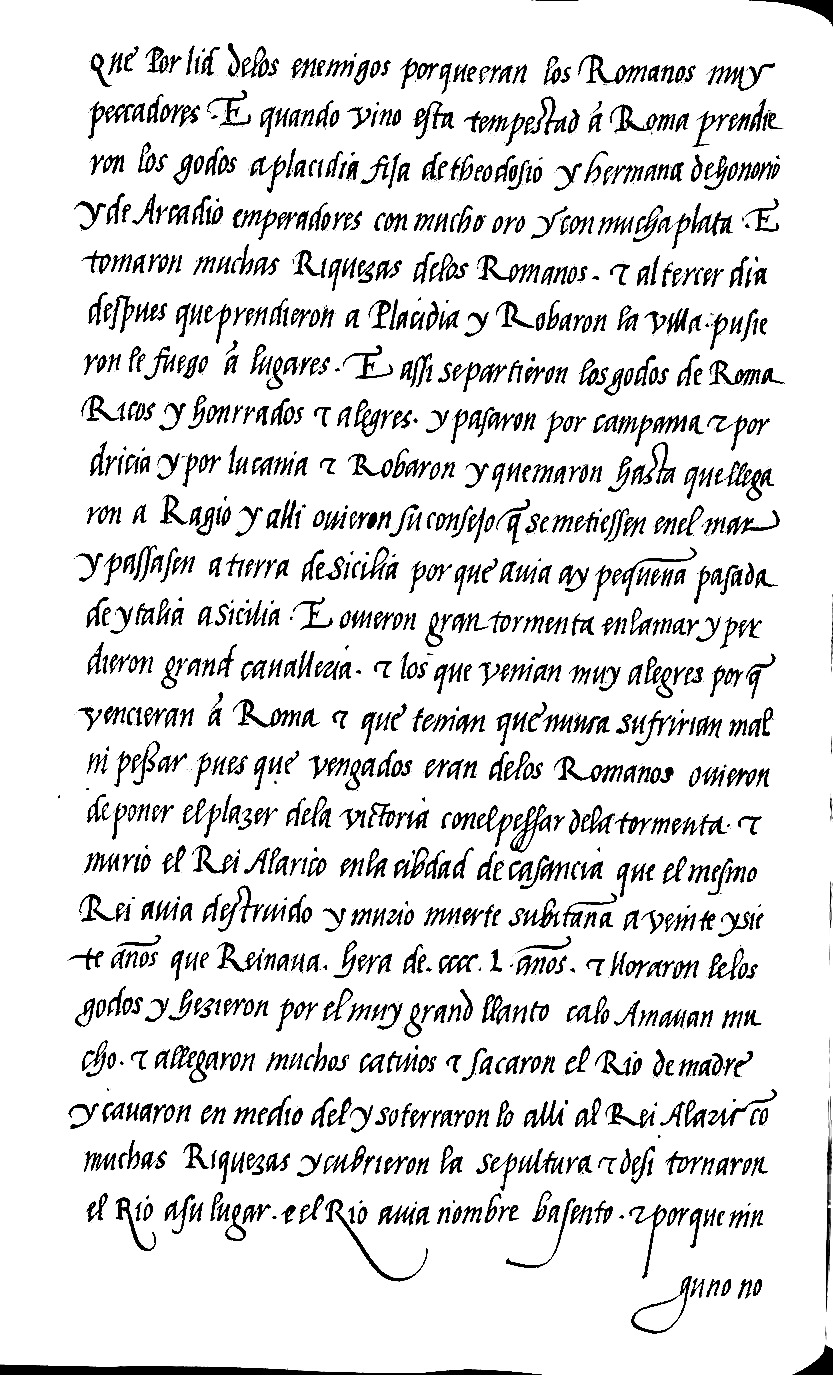 que Por lid delos enemigos porque eran los Romanos muy
peccadores. E quando vino esta tempestad á Roma prendie
ron los godos a placidia fija de theodosio y hermana de honorio
y de Arcadio emperadores con mucho oro y con mucha plata. E
tomaron muchas Riquezas delos Romanos. τ al tercer dia
despues que prendieron a Placidia y Robaron la villa. pusie
ron le fuego á lugares. E assi se partieron los godos de Roma
Ricos y honrrados τ alegres. y pasaron por campama τ por
dricia y por lucania τ Robaron y quemaron hasta que llega
ron a Ragio y alli ouieron su consejo q̃ se metiessen enel mar
y passasen a tierra de Sicilia por que auia ay pequena pasada
de ytalia a Sicilia. E ouieron gran tormenta enla mar y per
dieron grand caualleria. τ los que venian muy alegres por q̃
vencieran á Roma τ que tenian que nunca sufririan mal
ni peßar pues que vengados eran delos Romanos ouieron
de poner el plazer dela victoria conel pessar dela tormenta. τ
murio el Rei Alarico enla cibdad de casancia que el mesmo
Rei auia destruido y murio muerte subitana a veinte y sie
te años que Reinaua. hera de. cccc. l. años. τ lloraron le los
godos y hezieron por el muy grand llanto calo Amauan mu
cho. τ allegaron muchos catiuos τ sacaron el Rio de madre
y cauaron en medio del y soterraron lo alli al Rei Alaric cõ
muchas Riquezas y cubrieron la sepultura τ desi tornaron
el Rio a su lugar. e el Rio auia nombre basento. τ porque nin
guno no